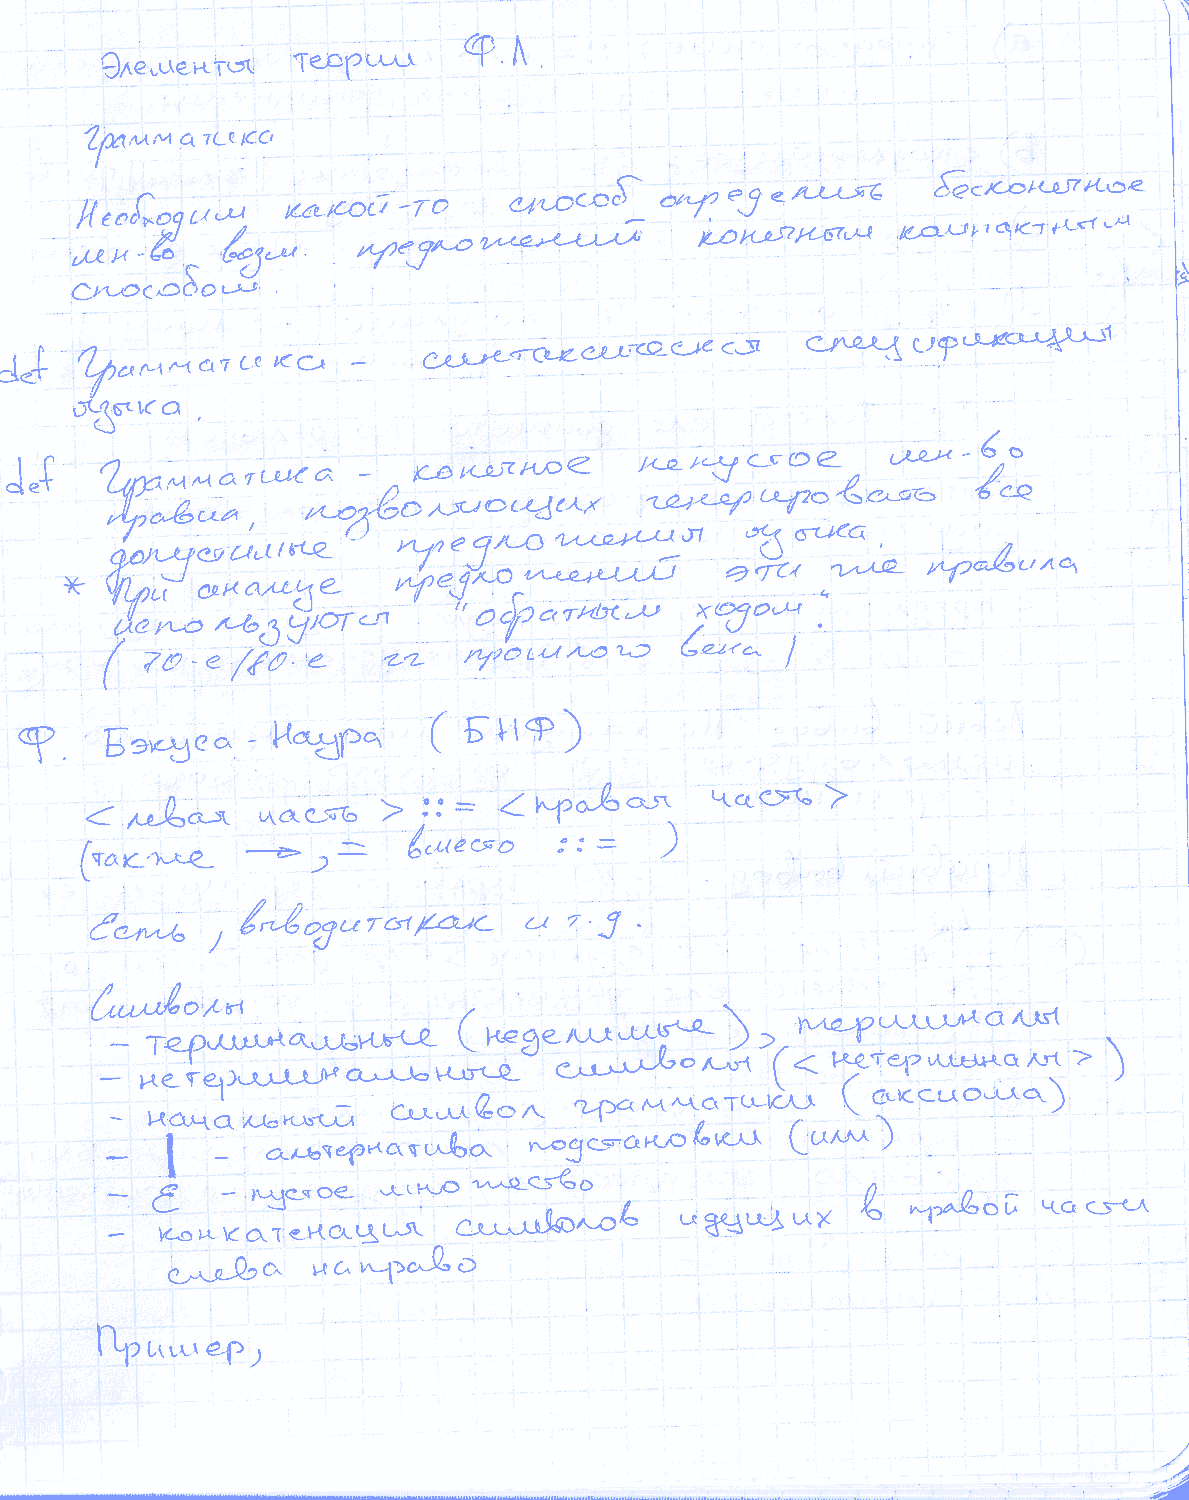 Элементы теории Ф.Л.
Грамматика
Необходим какой-то способ определить бесконечное
мн-во возм. предложений конечным компактным
способом.
def Грамматика - синтаксическая спецификация
языка.
def Грамматика - конечное непустое мн-во
правил, позволяющих генерировать все
допустимые предложения языка.
* При анализе предложений эти же правила
используются "обратным ходом".
(70-е/80-е гг прошлого века)
Ф. Бэкуса-Наура (БНФ)
<левая часть> ::= <правая часть>
(также →, = вместо ::= )
Есть, выводится как и т.д.
Символы
- терминальные (неделимые), терминалы
- нетерминальные символы (<нетерминалы>)
- начальный символ грамматики (аксиома)
- | - альтернатива подстановки (или)
- ε - пустое множество
- конкатенация символов идущих в правой части
слева направо
Пример,